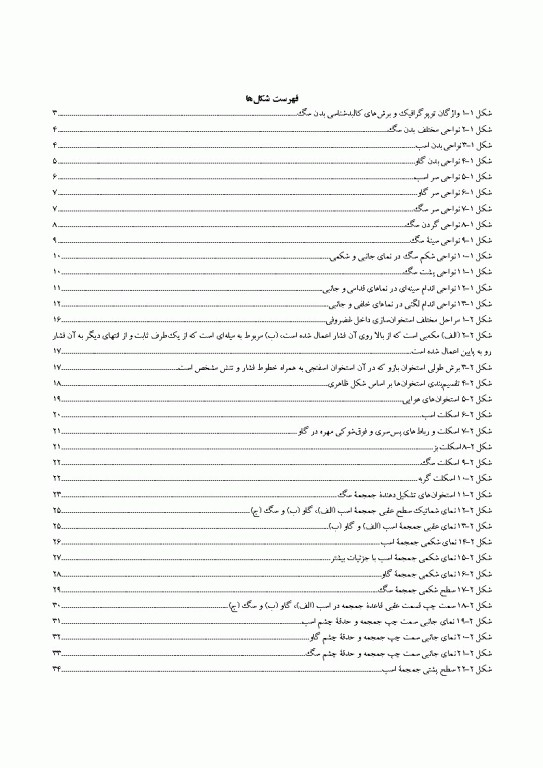 فهرست شکل‌ها
شکل ۱-۱ واژگان توپوگرافیک و برش‌های کالبدشناسی بدن سگ ۳
شکل ۱-۲ نواحی مختلف بدن سگ ۴
شکل ۱-۳ نواحی بدن اسب ۴
شکل ۱-۴ نواحی بدن گاو ۵
شکل ۱-۵ نواحی سر اسب ۶
شکل ۱-۶ نواحی سر گاو ۷
شکل ۱-۷ نواحی سر سگ ۷
شکل ۱-۸ نواحی گردن سگ ۸
شکل ۱-۹ نواحی سینهٔ سگ ۹
شکل ۱-۱۰ نواحی شکم سگ در نمای جانبی و شکمی ۱۰
شکل ۱-۱۱ نواحی پشت سگ ۱۰
شکل ۱-۱۲ نواحی اندام سینه‌ای در نماهای قدامی و جانبی ۱۱
شکل ۱-۱۳ نواحی اندام لگنی در نماهای خلفی و جانبی ۱۲
شکل ۲-۱ مراحل مختلف استخوان‌سازی داخل غضروفی ۱۶
شکل ۲-۲ (الف) مکعبی است که از بالا روی آن فشار اعمال شده است، (ب) مربوط به میله‌ای است که از یک‌طرف ثابت و از انتهای دیگر به آن فشار
رو به پایین اعمال شده است ۱۷
شکل ۲-۳ برش طولی استخوان بازو که در آن استخوان اسفنجی به همراه خطوط فشار و تنش مشخص است ۱۷
شکل ۲-۴ تقسیم‌بندی استخوان‌ها بر اساس شکل ظاهری ۱۸
شکل ۲-۵ استخوان‌های هوایی ۱۹
شکل ۲-۶ اسکلت اسب ۲۰
شکل ۲-۷ اسکلت و رباط‌های پس‌سری و فوق‌شوکی مهره در گاو ۲۱
شکل ۲-۸ اسکلت بز ۲۱
شکل ۲-۹ اسکلت سگ ۲۲
شکل ۲-۱۰ اسکلت گربه ۲۲
شکل ۲-۱۱ استخوان‌های تشکیل‌دهندهٔ جمجمهٔ سگ ۲۳
شکل ۲-۱۲ نمای شماتیک سطح عقبی جمجمهٔ اسب (الف)، گاو (ب) و سگ (ج) ۲۵
شکل ۲-۱۳ نمای عقبی جمجمهٔ اسب (الف) و گاو (ب) ۲۵
شکل ۲-۱۴ نمای شکمی جمجمهٔ اسب ۲۶
شکل ۲-۱۵ نمای شکمی جمجمهٔ اسب با جزئیات بیشتر ۲۷
شکل ۲-۱۶ نمای شکمی جمجمهٔ گاو ۲۸
شکل ۲-۱۷ سطح شکمی جمجمهٔ سگ ۲۹
شکل ۲-۱۸ سمت چپ قسمت عقبی قاعدهٔ جمجمه در اسب (الف)، گاو (ب) و سگ (ج) ۳۰
شکل ۲-۱۹ نمای جانبی سمت چپ جمجمه و حدقهٔ چشم اسب ۳۱
شکل ۲-۲۰ نمای جانبی سمت چپ جمجمه و حدقهٔ چشم گاو ۳۲
شکل ۲-۲۱ نمای جانبی سمت چپ جمجمه و حدقهٔ چشم سگ ۳۳
شکل ۲-۲۲ سطح پشتی جمجمهٔ اسب ۳۴